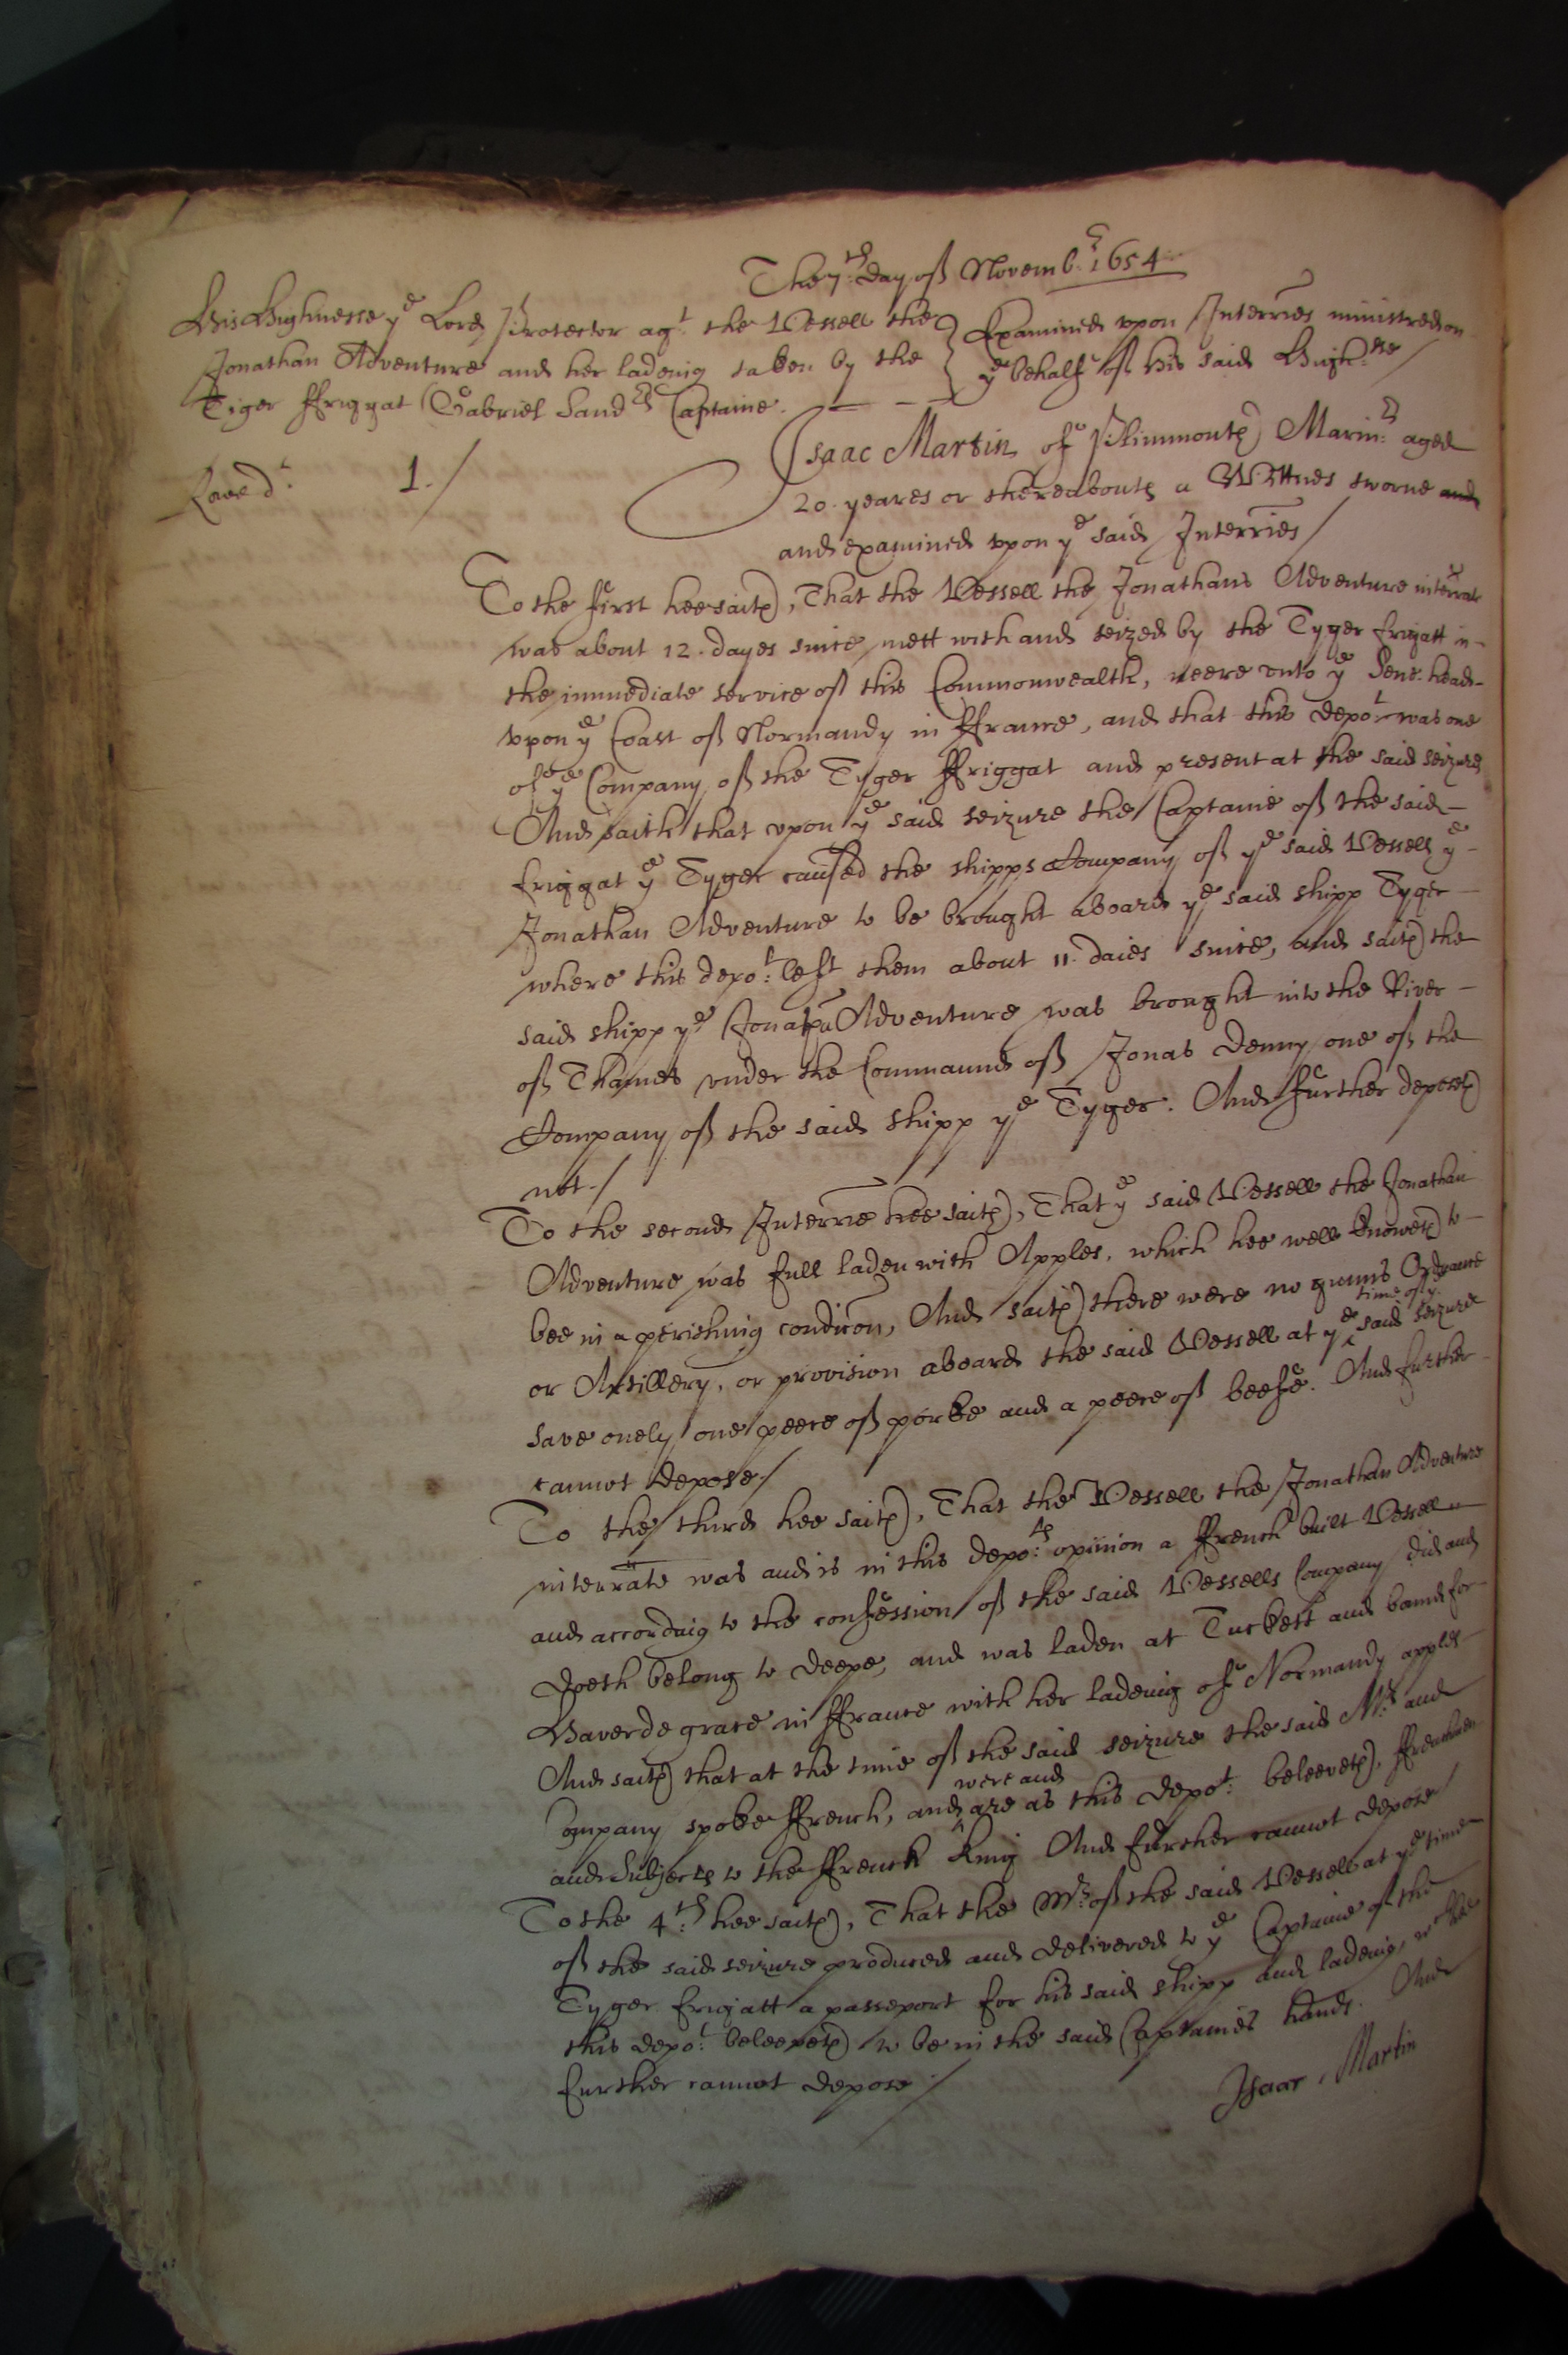 The 7th day of Novemb:r 1654
His Highnesse ye Lord Protector agt the Vessell the
Jonathan Adventure and her ladeing taken by the
Tiger ffriggat Gabriel Sandrs Captaine.
Examined upon Interries ministred on
ye behalf of his said Highnes
1./
Isaac Martin of Plimmouth Marinr: aged
20. yeares or thereabouts a Wittnes sworne and
and examined upon ye said Interries/
To the first hee saith, That the Vessell the Jonathans Adventure interrate
was about 12. dayes since mett with and seized by the Tyger frigatt in
the immediate service of this Commonwealth, neere unto ye Sene head
upon ye Coast of Normandy in ffrance, and that this depot was one
of ye Company of the Tyger ffriggat and present at the said seizure
And saith that upon ye said seizure the Captaine of the said
friggat ye Tyger caused the shipps Company of ye said Vessell ye
Jonathan Adventure to be brought aboard ye said shipp Tyger
where this depot: left them about 11. daies since, and saith the
said shipp ye Jonathan Adventure was brought into the River
of Thames under the Commaund of Jonas Denny one of the
Company of the said shipp ye Tyger. And further deposeth
not./
To the second Interrie hee saith, That ye said Vessell the Jonathan
Adventure was full laden with Apples, which hee well knoweth to
bee in a perishing condicon, And saith there were no gunns Ordnance
or Artillery, or provision aboard the said Vessell at ye time of ye said seizure
save onely one peece of porke and a peece of beefe. And further
cannot depose./
To the third hee saith, That the Vessell the Jonathan Adventure
interrate was and is in this depots: opinion a ffrench built Vessell
and according to the confession of the said Vessells Company did and
doeth belong to Deepe, and was laden at Tuckest and bound for
Haver de grace in ffrance with her ladeing of Normandy apples
And saith that at the time of the said seizure the said Mr: and
Company spoke ffrench, and were and are as this depot: beleeveth, ffrenchmen
and Subjects to the ffrench King And further cannot depose/
To the 4th: hee saith, That the Mr: of the said Vessell at ye time
of the said seizure produced and delivered to ye Captaine of the
Tyger frigatt a passeport for his said shipp and ladeing, which
this depot: beleeveth to be in the said Captaines hands. And
further cannot depose/
Isaac Martin